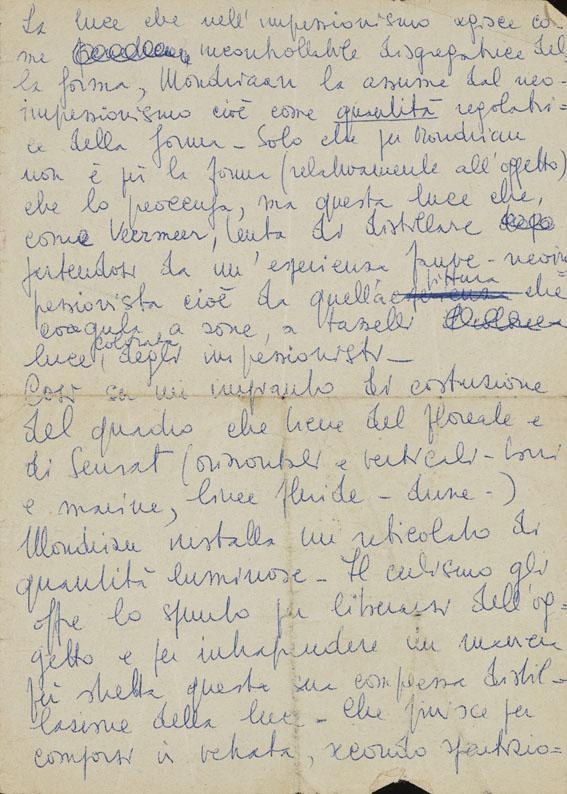 La luce che nell'impressionismo agisce co-
me incontrollabile disgregatrice del-
la forma, Mondriaan la assume dal neo-
impressionismo cioè come quantità regolatri=
ce della forma - Solo che per Mondrian
non è più la forma (relativamente all'oggetto)
che lo preoccupa, ma questa luce che,
come Veermeer, tenta di distillare
partendosi da un'esperienza pure-neoim
pressionista cioè da quella pittura che
coagula, a zone, a tasselli
luce colorata, degli impressionisti -
Così su un impianto di costruzione
del quadro che tiene del floreale e
di Seurat (orizzontali e verticali - torri
e marine, linee fluide - dune -)
Mondrian installa un reticolato di
quantità luminose - Il cubismo gli
offre lo spunto per liberarsi dell'og=
getto e per intraprendere in maniera
più stretta questa sua complessa distil-
lazione della luce - Che finisce per
comporsi in vetrata, secondo